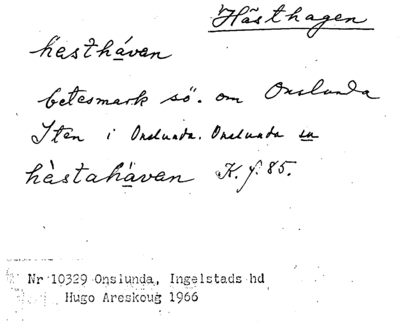 Hästhagen
hästháven
betesmark sö. om Onslunda
Iten i Onslunda. Onslunda sn
hàstaháven K. f. 85.
Nr 10329 Onslunda, Ingelstads hd
Hugo Areskoug 1966